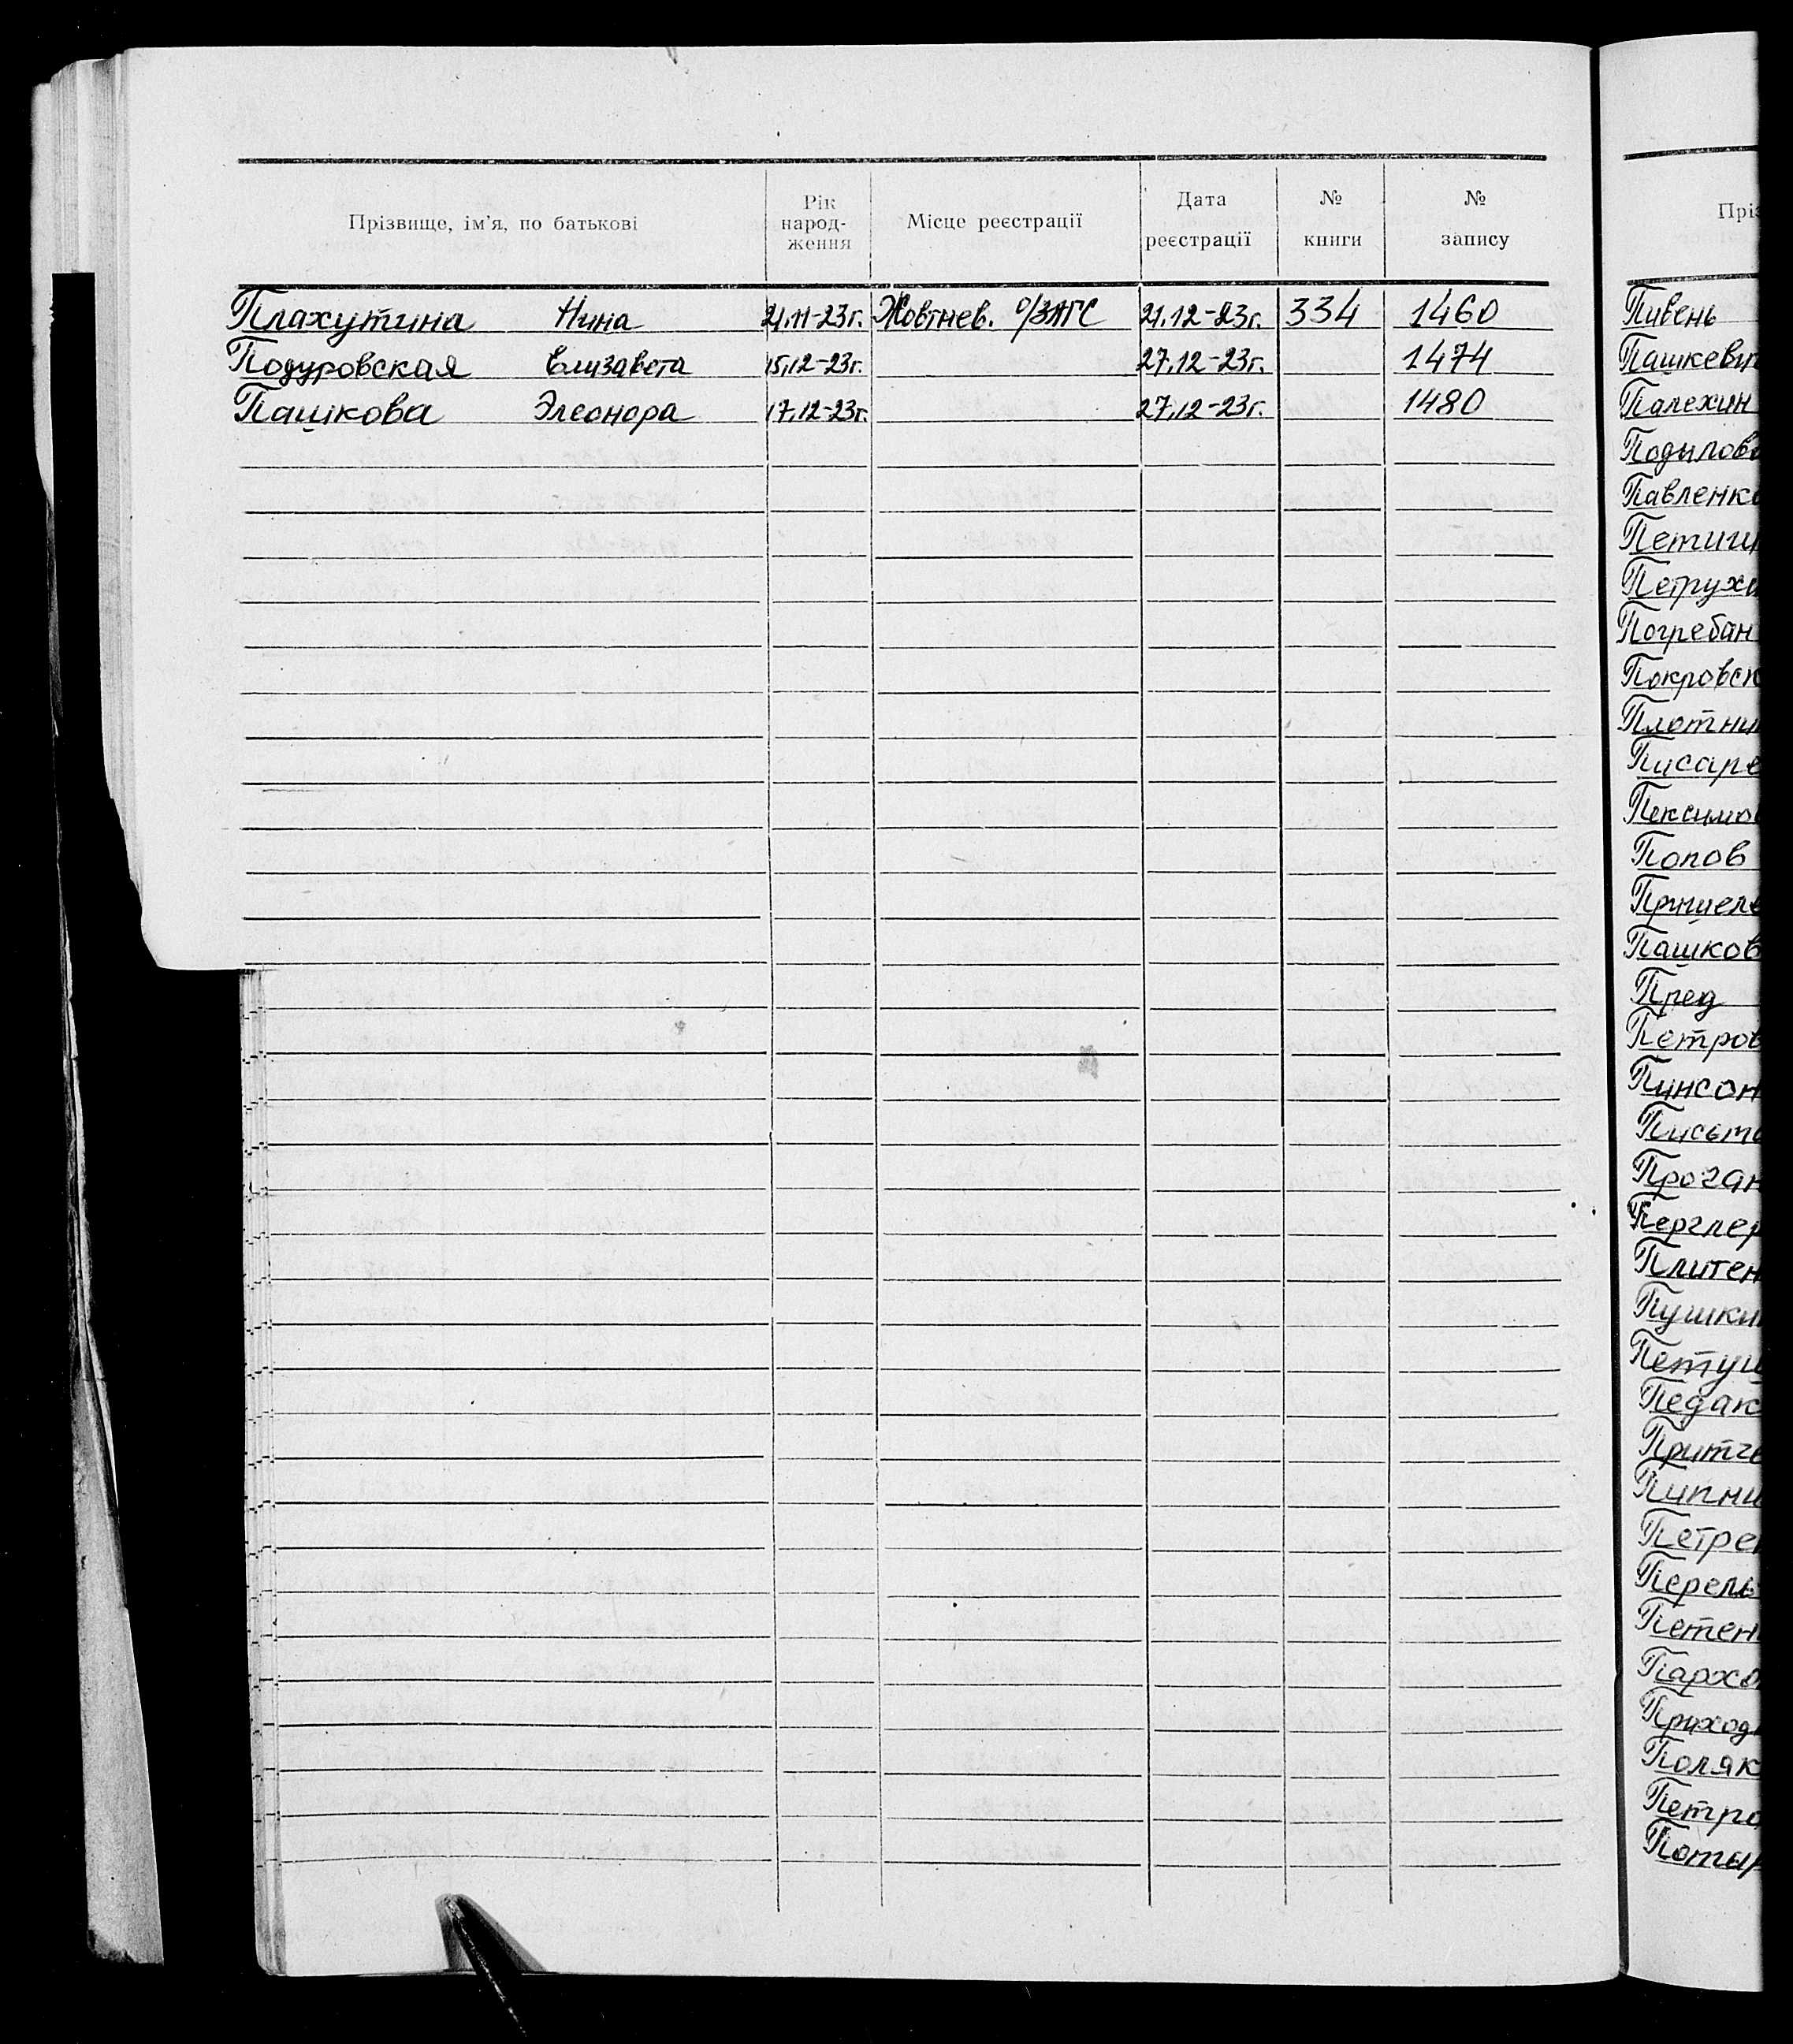 Прізвище, ім'я, по батькові Рік народ- ження Місце реєстрації Дата реєстрації № книги № запису
Плахутина Нина 21.11-23г. Жовтнев. о/ЗАГС 21.12-23г. 334 1460
Подуровская Елизавета 15.12-23г. 27.12-23г. 1474
Пашкова Элеонора 17.12-23г. 27.12-23г. 1480
Пріз
Пивень
Пашкеви
Палехин
Подылов
Павленко
Петиш
Петрух
Погребан
Покровск
Плотни
Писаре
Пексимо
Попов
Пришеле
Пашков
Пред
Петров
Пинсон
Письм
Проган
Перглер
Плитен
Пушки
Петуш
Педак
Притч
Пипни
Петре
Перель
Петен
Пархо
Приход
Поляк
Петро
Потыр